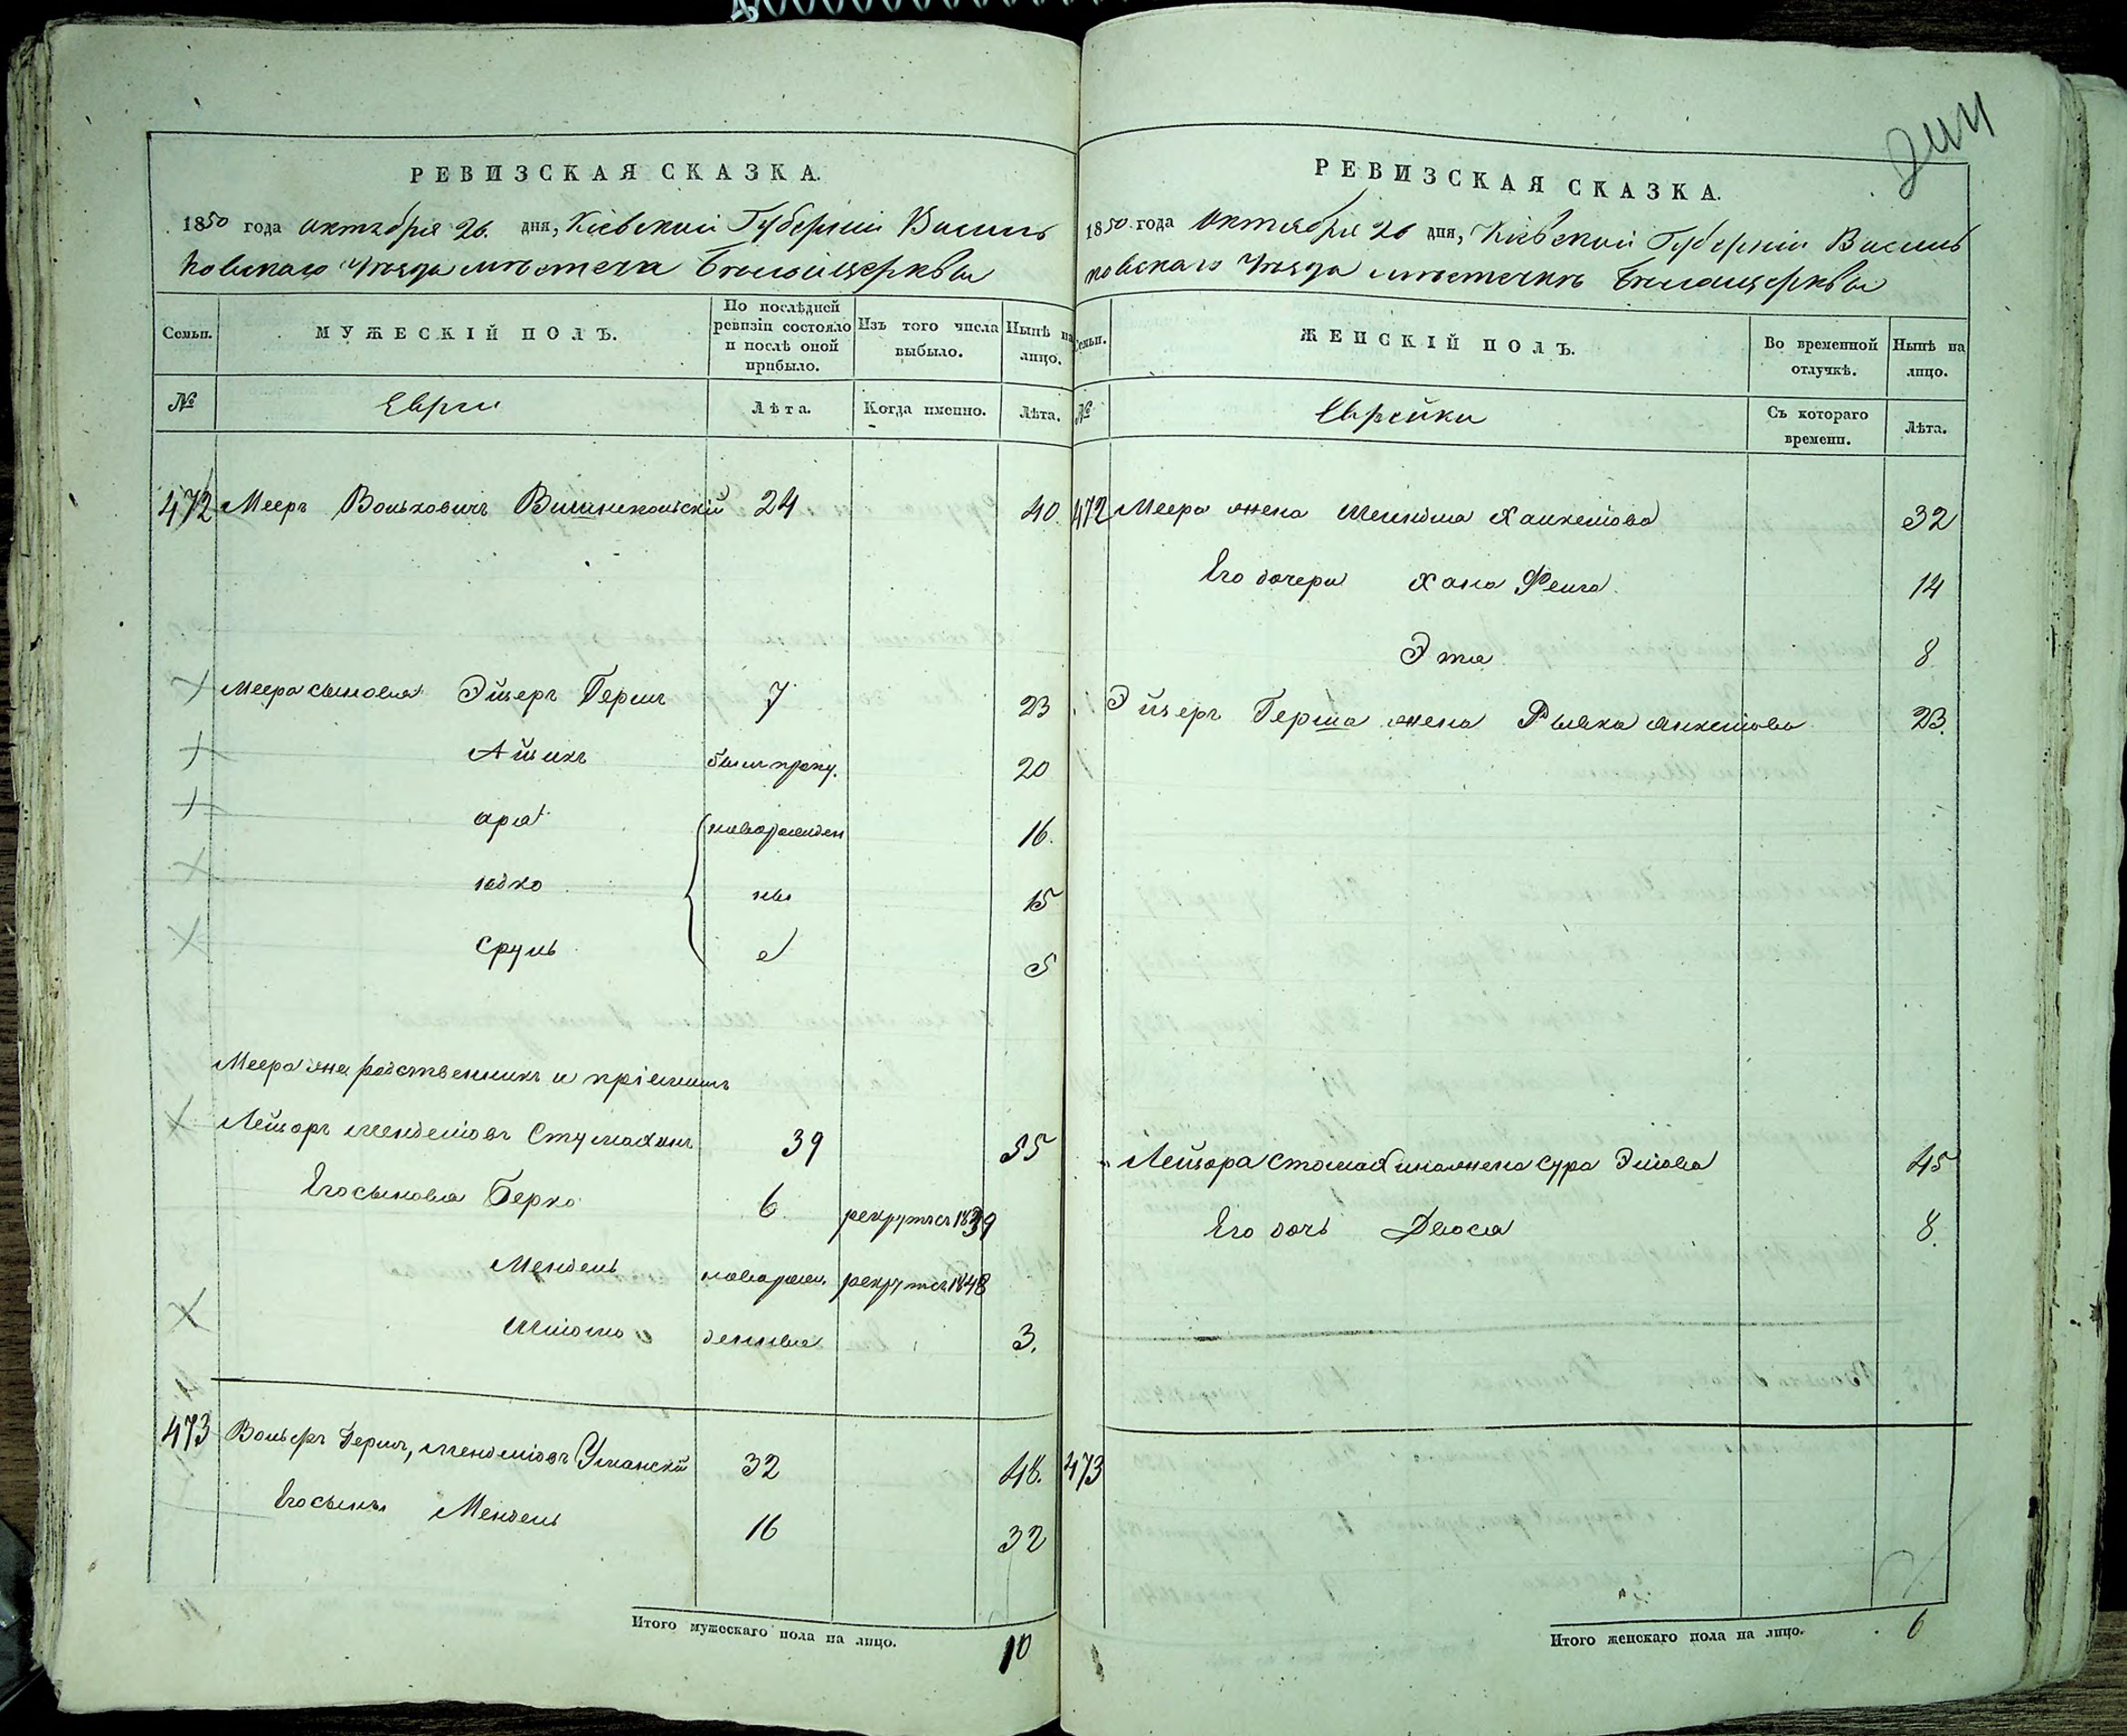 РЕВИЗСКАЯ СКАЗКА.
1850 года октября 26. дня, Кіевской Губерніи Василь
ковскаго уѣзда мѣстечка Бѣлойцеркви
Семьи.
МУЖЕСКІЙ ПОЛЪ.
По послѣдней ревизіи состояло и послѣ оной прибыло.
Изъ того числа выбыло.
Нынѣ на лицо.
№
Евреи
Лѣта.
Когда именно.
Лѣта.
472 Мееръ Вольковичъ 24 40.
Меера сыновья Эйзеръ Герш 7 23
Айзикъ 20
16.
Юдко 15
Сруль 5
Меера же родственникъ и
Лейзоръ Менделіовъ 39 55
Его сыновья Берко 6 рекрутъ съ 1839
Мендель новорож. рекрутъ съ 1848
Шліома денные 3.
473 Вольфъ Гершъ, Менделіовъ Уманскій 32 48.
Его сынъ Мендель 16 32
Итого мужескаго пола на лицо. 10
244
РЕВИЗСКАЯ СКАЗКА.
1850 года октября 26 дня, Кіевской Губерніи Василь
ковскаго уѣзда мѣстечкѣ Бѣлойцеркви
Семьи.
ЖЕНСКІЙ ПОЛЪ.
Во временной отлучкѣ.
Нынѣ на лицо.
№
Еврейки
Съ котораго времени.
Лѣта.
472 Меера жена 32
Его дочери Хана Фейга 14
Этя 8
Эйзеръ Герша жена Рывка Янкеліова 23.
Лейзора жена Сура 45
Его дочь Двося 8.
473
Итого женскаго пола на лицо. 6